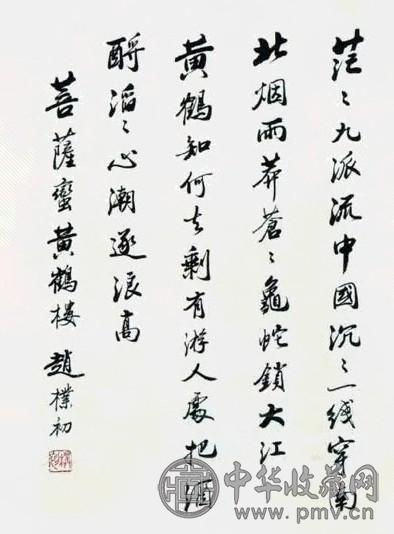 茫〻九派流中國沉〻一线穿南
北烟雨莽蒼〻龜蛇鎖大江
黄鶴知何去剩有游人處把酒
酹滔〻心潮逐浪高
菩薩蠻黄鶴樓 趙樸初
中华收藏网
www.pmv.cn